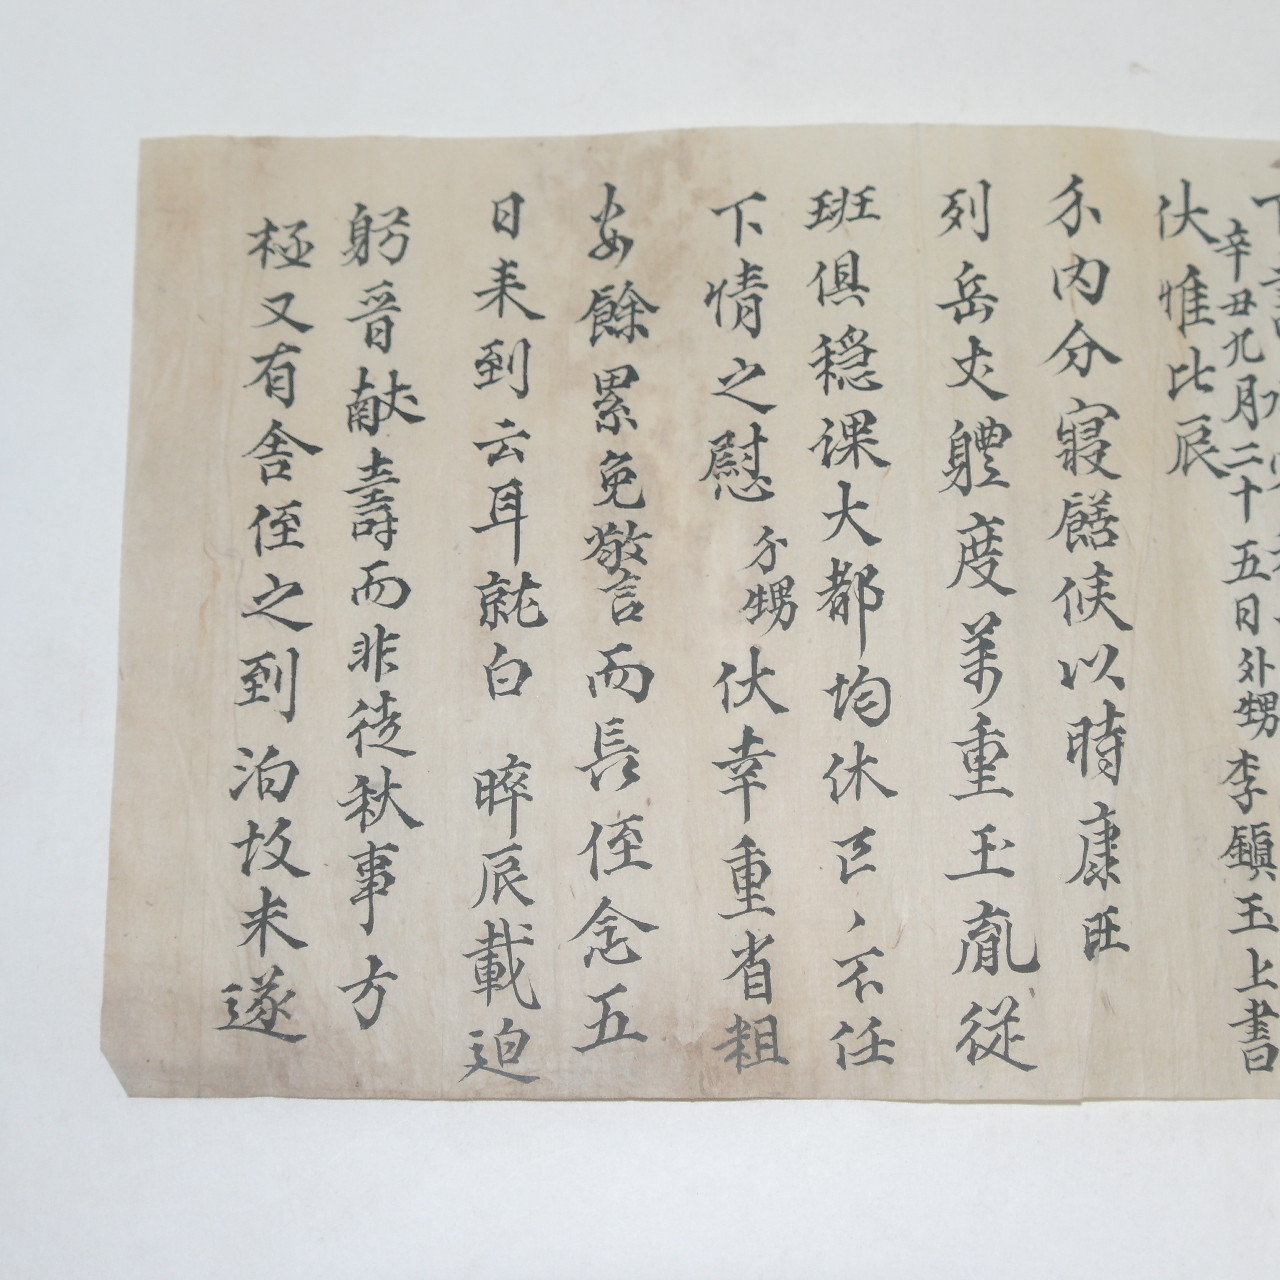 辛丑九月二十五日外甥李鎭玉上書
伏惟比辰
尒内分寝饍候以時康旺
列岳丈軆度萬重玉胤従
班俱穏課大都均休區〻不任
下情之慰 尒甥 伏幸重省粗
安餘累免警而長侄念五
日来到云耳就白 晬辰載迫
躬晉献壽而非徒秋事方
極又有舎侄之到泊故未遂